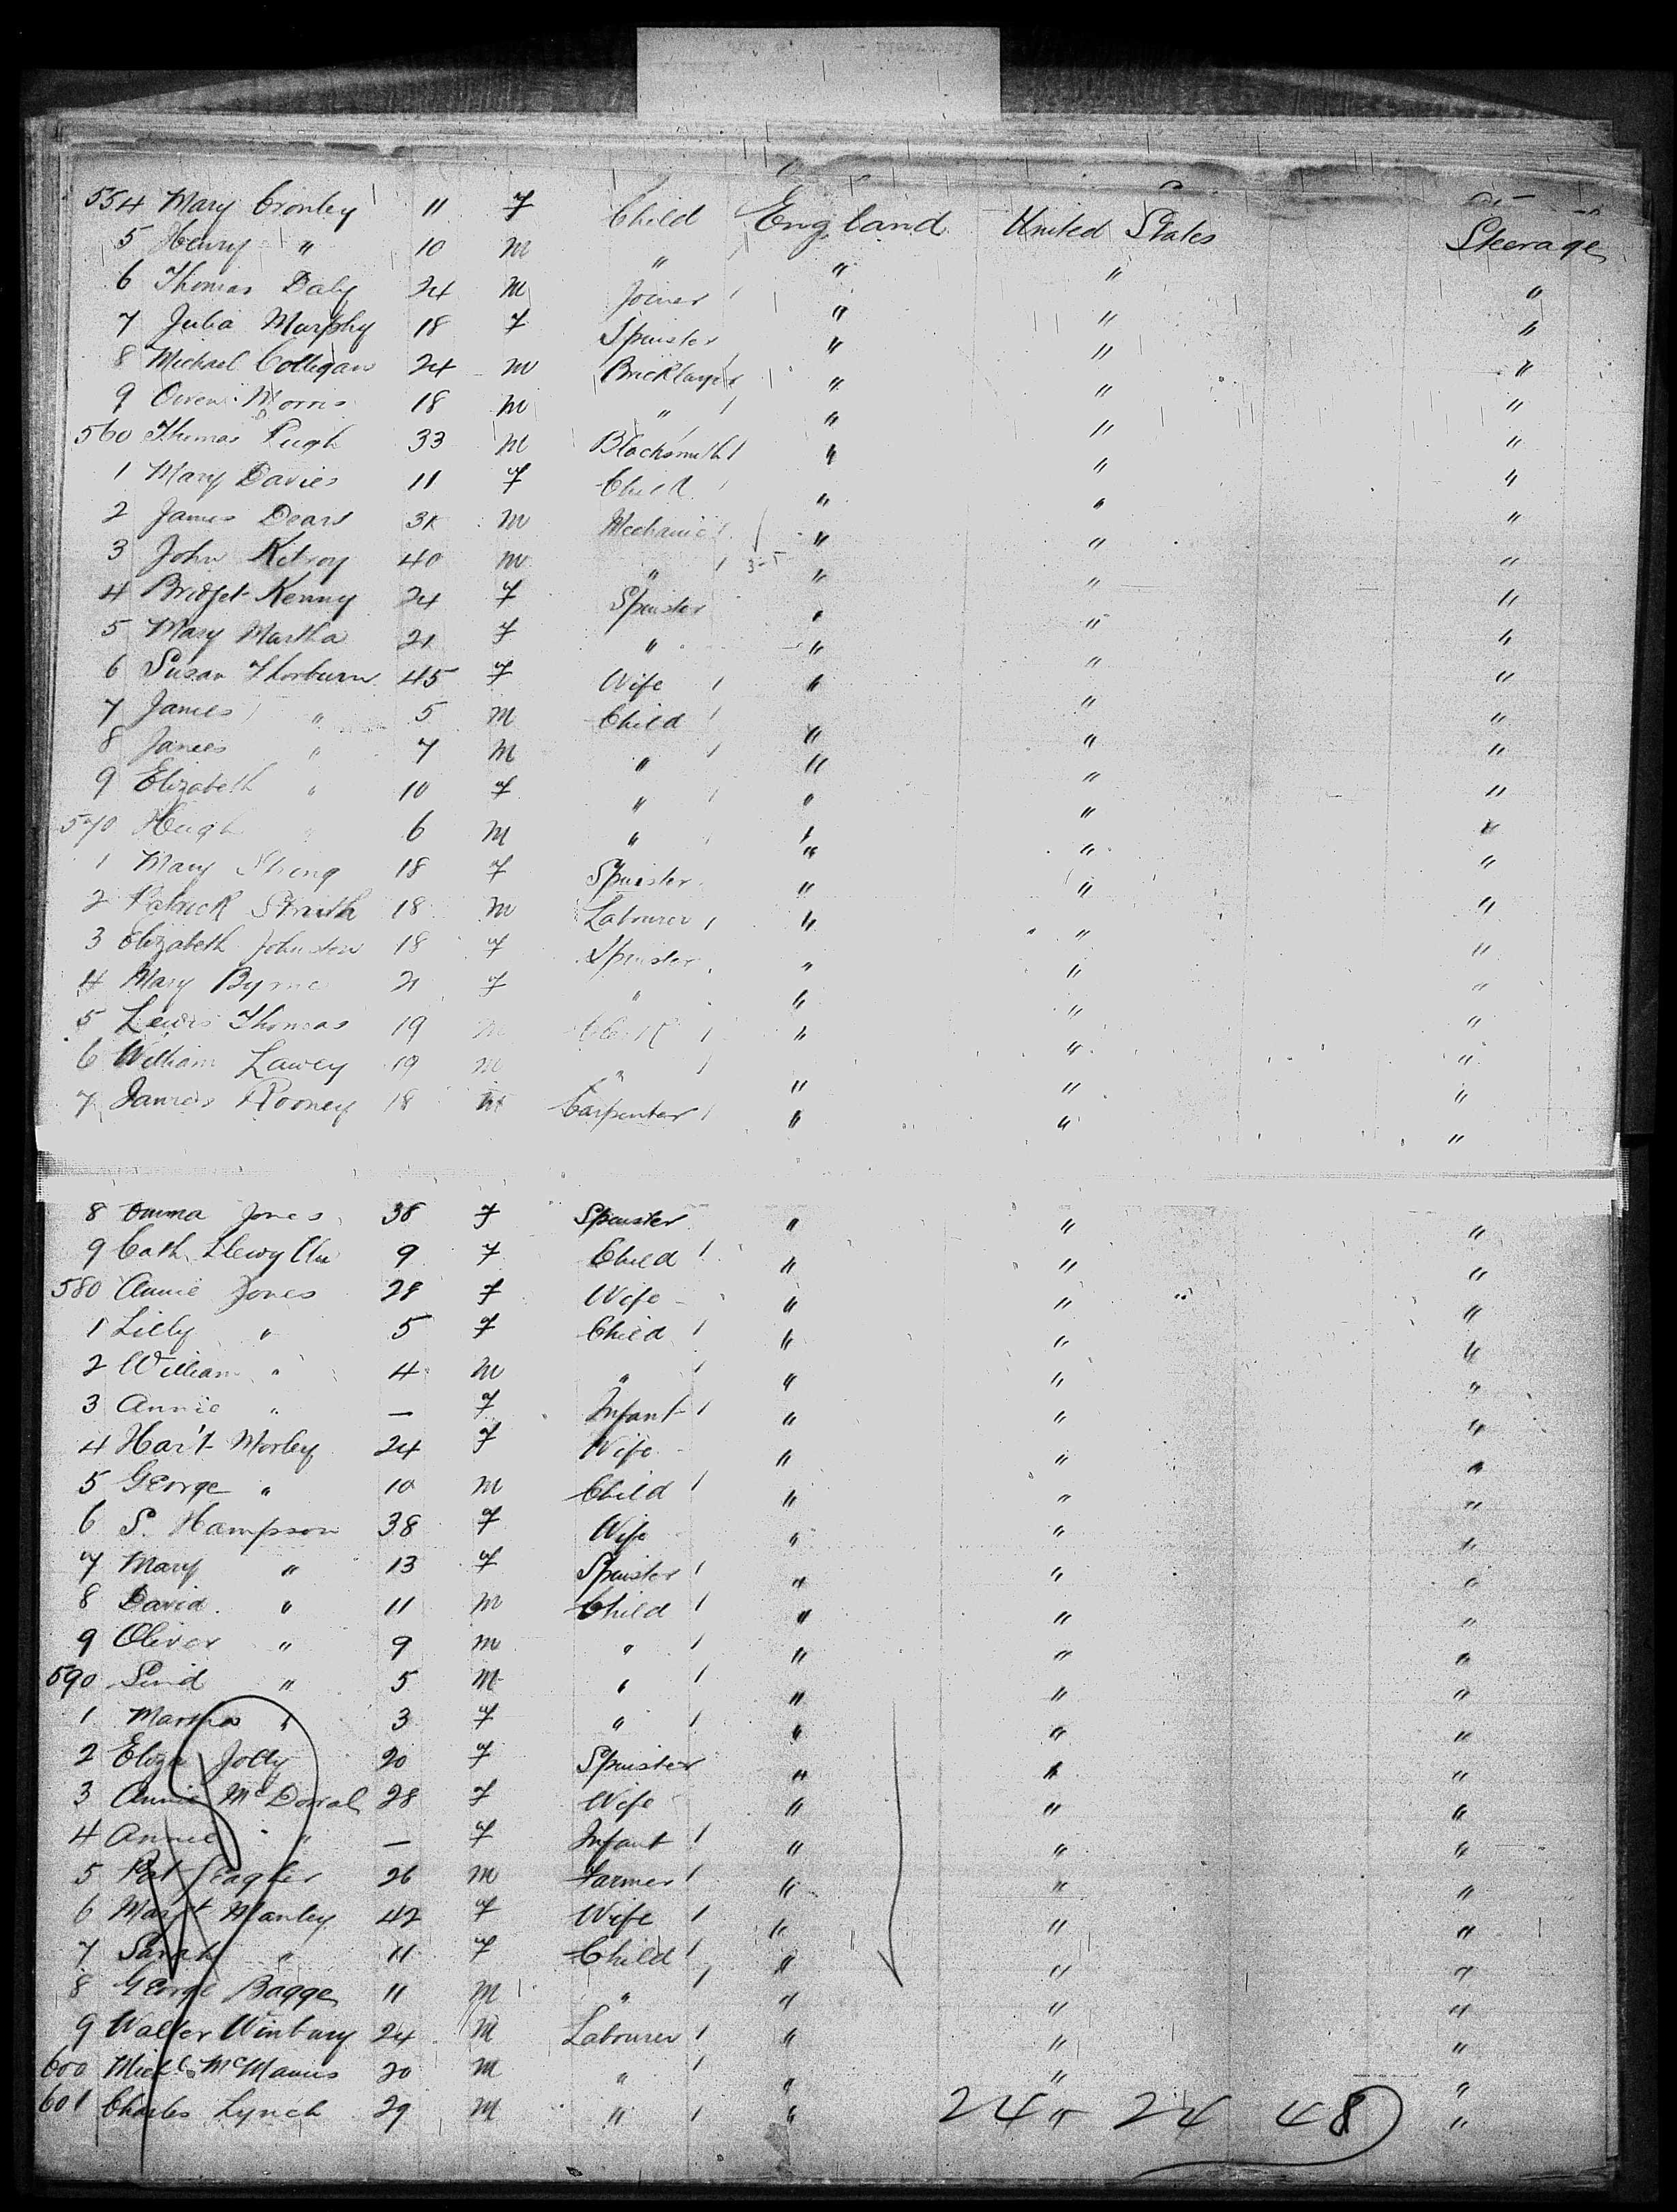 554 Mary Cronley 11 F Child England United States Steerage
5 Henry " 10 M " " " "
6 Thomas Daly 24 M Joiner " " "
7 Julia Murphy 18 F Spinster " " "
8 Michael Colligan 24 M Bricklayer " " "
9 Owen Morris 18 M " " " "
560 Thomas Pugh 33 M Blacksmith " " "
1 Mary Davies 11 F Child " " "
2 James Dears M Mechanic " " "
3 John Kilroy 40 M " " " "
4 Bridget Kenny 24 F Spinster " " "
5 Mary Martha 21 F " " " "
6 Susan Thorburn 45 F Wife " " "
7 James " 5 M Child " " "
8 James " 7 M " " " "
9 Elizabeth " 10 F " " " "
570 Hugh " 6 M " " " "
1 Mary 18 F Spinster " " "
2 Patrick 18 M Labourer " " "
3 Elizabeth Johnston 18 F Spinster " " "
4 Mary Byrne 21 F " " " "
5 Lewis Thomas 19 M Clerk " " "
6 William Lawey 19 M " " " "
7 James Rooney 18 M Carpenter " " "
8 Emma Jones 38 F Spinster " " "
9 Cath. Llewyllin 9 F Child " " "
580 Annie Jones 28 F Wife " " "
1 Lilly " 5 F Child " " "
2 William " 4 M " " " "
3 Annie " — F Infant " " "
4 Har't Morley 24 F Wife " " "
5 George " 10 M Child " " "
6 S. Hampson 38 F Wife " " "
7 Mary " 13 F Spinster " " "
8 David " 11 M Child " " "
9 Oliver " 9 M " " " "
590 " 5 M " " " "
1 Martha " 3 F " " " "
2 Eliza Jolly 20 F Spinster " " "
3 Annie 28 F Wife " " "
4 Annie " — F Infant " " "
5 Pat 26 M Farmer " " "
6 Marg't Manley 42 F Wife " " "
7 Sarah " 11 F Child " " "
8 George Bagge 11 M " " " "
9 Walter Winbury 24 M Labourer " " "
600 Mich'l McManus 20 M " " " "
601 Charles Lynch 29 M " " " "
24 24 48